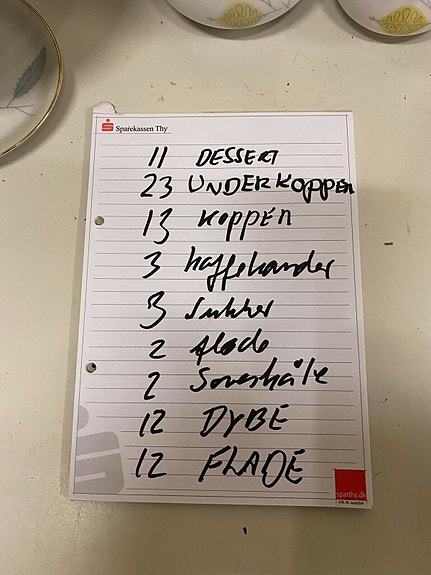 Sparekassen Thy
11 DESSERT
23 UNDERKOPPEN
13 KOPPEN
3 kaffekander
3 Sukker
2 fløde
2 Sovseskåle
12 DYBE
12 FLADE
sparthy.dk